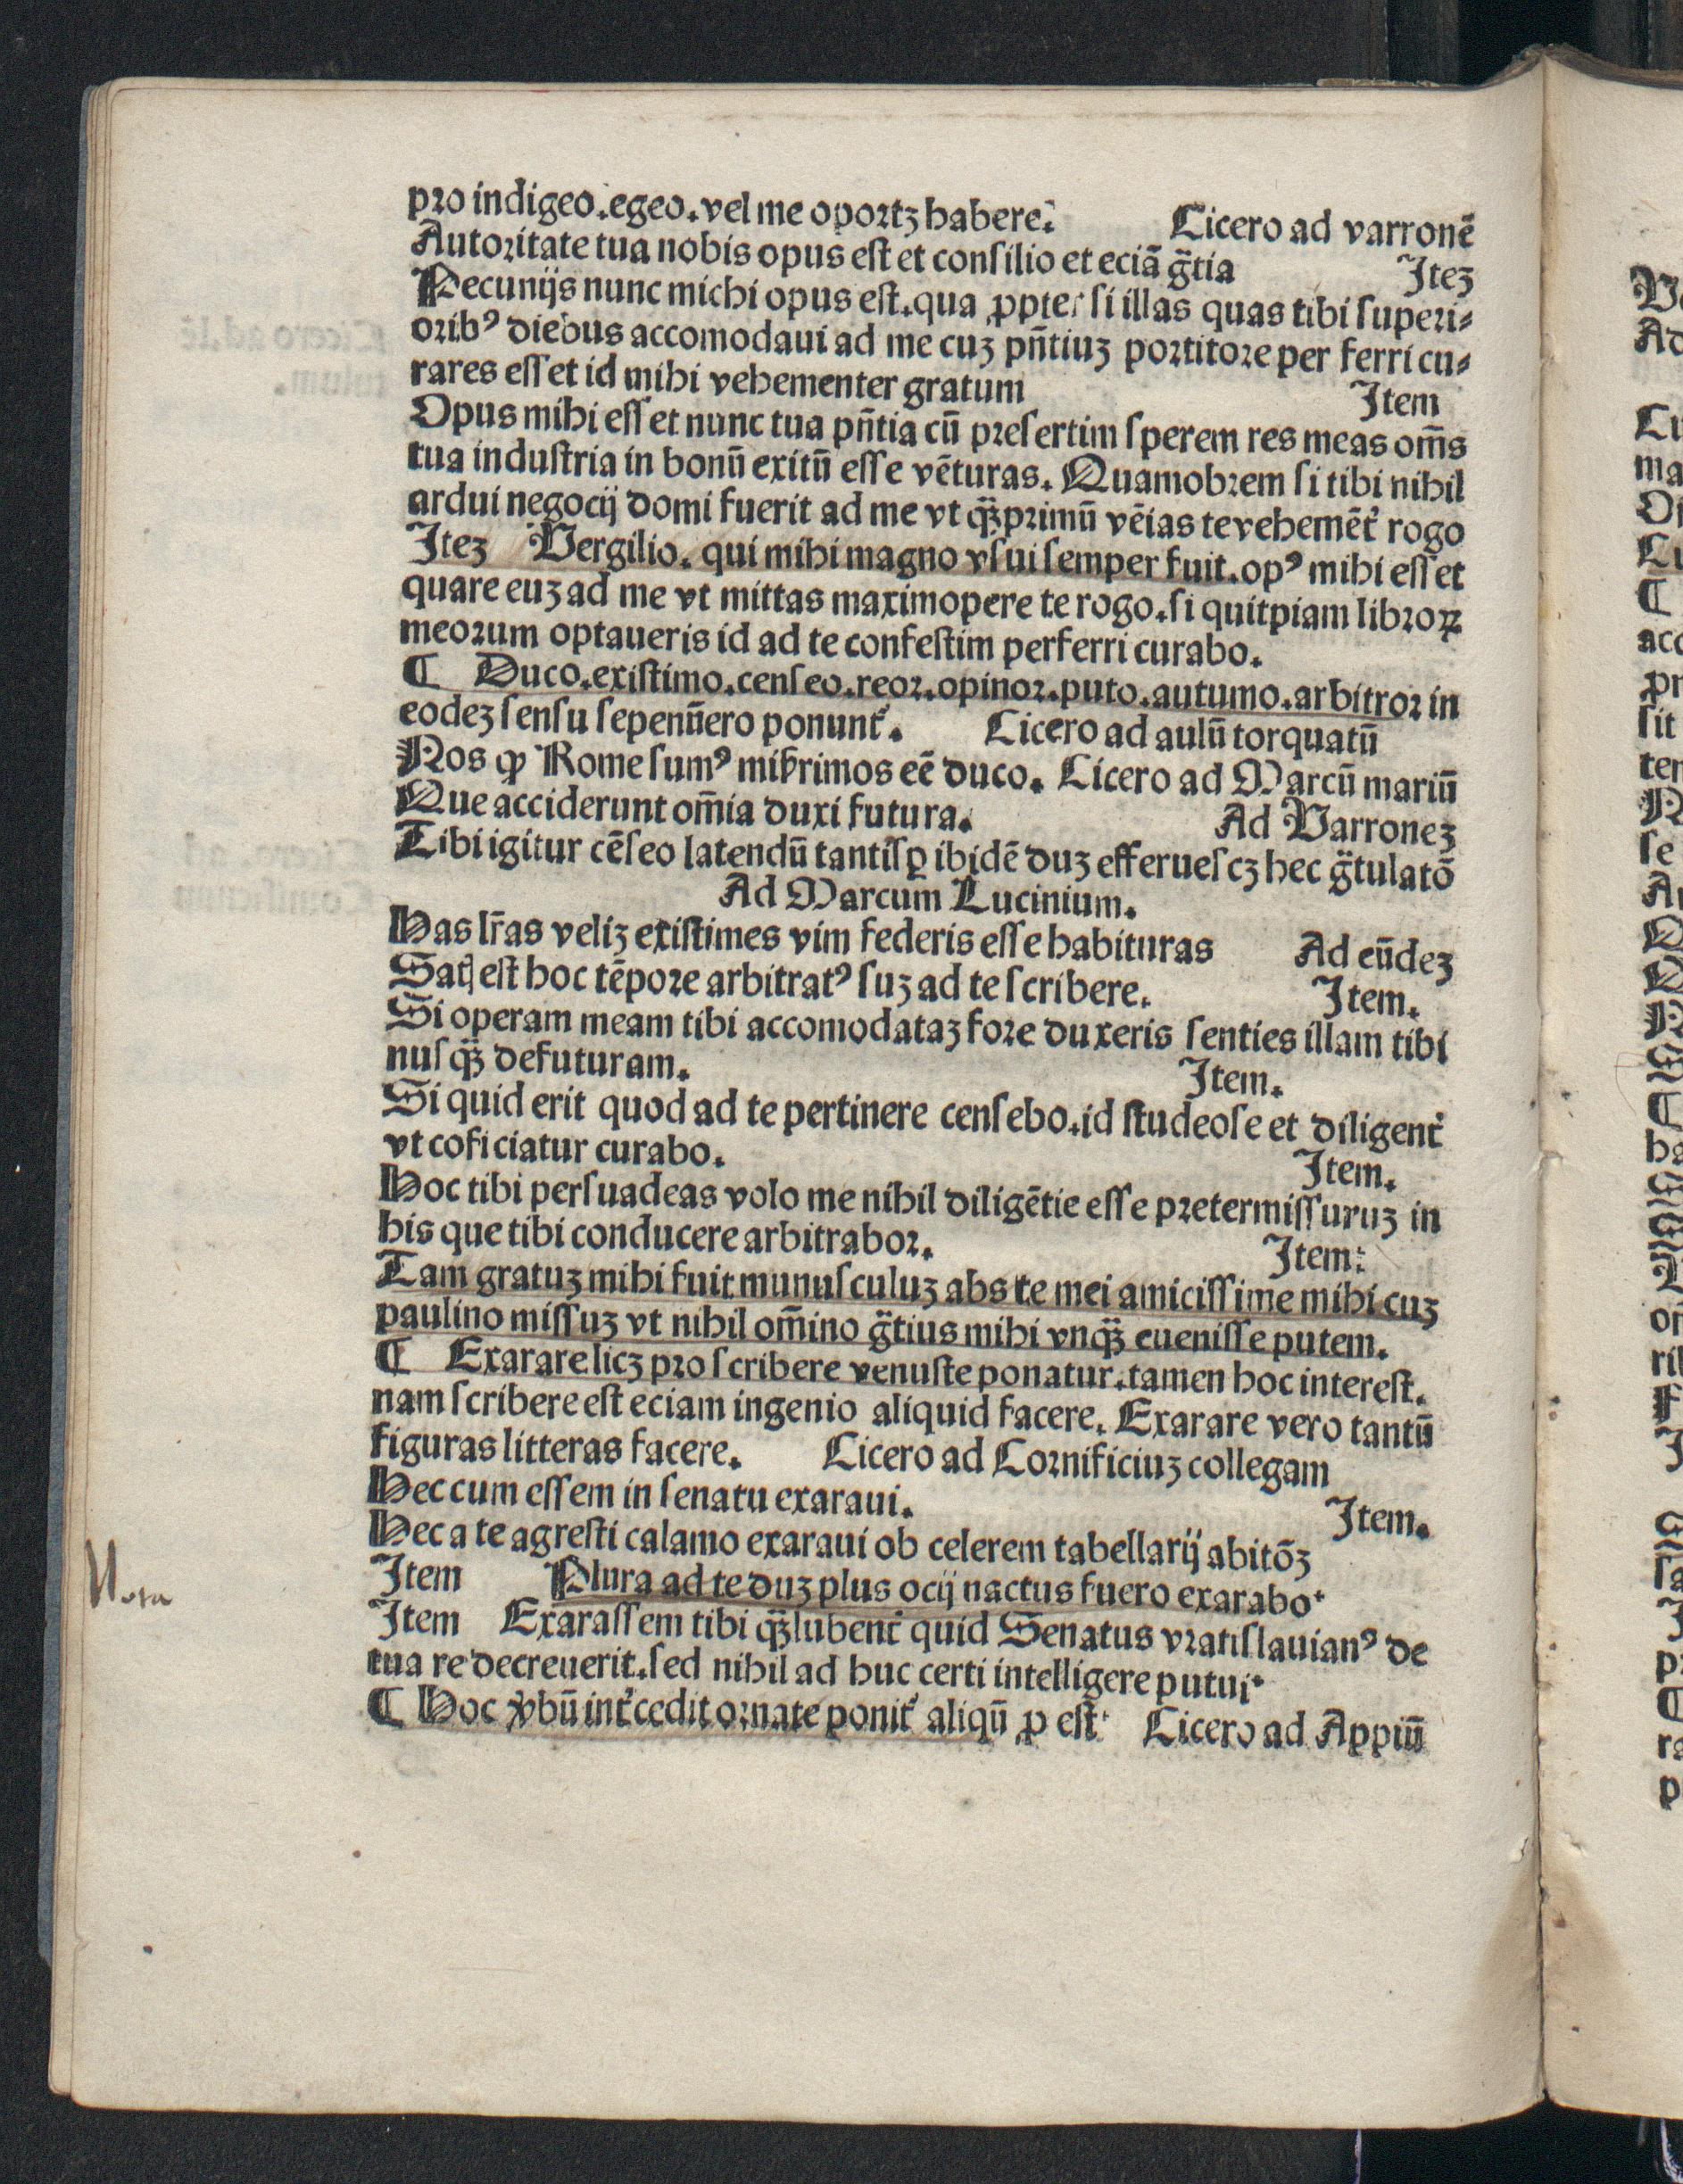 pro indigeo.egeo.vel me oportꝫ habere. Cicero ad varronē
Autoritate tua nobis opus est et consilio et eciā g̈tia Iteꝫ
Pecunijs nunc michi opus est.qua ꝓpter si illas quas tibi superi⸗
orib⁹ diebus accomodaui ad me cuꝫ pñtiuꝫ portitore per ferri cu⸗
rares esset id mihi vehementer gratum Item
Opus mihi esset nunc tua pñtia cū presertim sperem res meas om̄s
tua industria in bonū exitū esse vēturas. Quamobrem si tibi nihil
ardui negocij domi fuerit ad me vt qꝫ̈primū vēias te vehemēt̉ rogo
Iteꝫ Vergilio. qui mihi magno vsui semper fuit.op⁹ mihi esset
quare euꝫ ad me vt mittas maximopere te rogo.si quitpiam libroꝝ
meorum optaueris id ad te confestim perferri curabo.
¶ Duco.existimo.censeo.reor.opinor.puto.autumo.arbitror in
eodeꝫ sensu sepenūero ponunt̉. Cicero ad aulū torquatū
Nos ꝙ Rome sum⁹ miẜrimos eē duco. Cicero ad Marcū mariū
Que acciderunt om̄ia duxi futura. Ad Varroneꝫ
Tibi igitur cēseo latendū tantisꝑ ibidē duꝫ efferuescꝫ hec g̈tulatō
Ad Marcum Lucinium.
Has lr̄as veliꝫ existimes vim federis esse habituras Ad eūdeꝫ
Satꝭ est hoc tēpore arbitrat⁹ suꝫ ad te scribere. Item.
Si operam meam tibi accomodataꝫ fore duxeris senties illam tibi
nusqꝫ̈ defuturam. Item.
Si quid erit quod ad te pertinere censebo.id studeose et diligent̉
vt coficiatur curabo. Item.
Hoc tibi persuadeas volo me nihil diligētie esse pretermissuruꝫ in
his que tibi conducere arbitrabor. Item:
Tam gratuꝫ mihi fuit munusculuꝫ abs te mei amicissime mihi cuꝫ
paulino missuꝫ vt nihil om̄ino g̈tius mihi vnqꝫ̈ euenisse putem.
¶ Exarare licꝫ pro scribere venuste ponatur.tamen hoc interest.
nam scribere est eciam ingenio aliquid facere. Exarare vero tantū
figuras litteras facere. Cicero ad Cornificiuꝫ collegam
Hec cum essem in senatu exaraui. Item.
Hec a te agresti calamo exaraui ob celerem tabellarij abitōꝫ
Item Plura ad te duꝫ plus ocij nactus fuero exarabo.
Item Exarassem tibi qꝫ̈lubent̉ quid Senatus vratislauian⁹ de
tua re decreuerit.sed nihil ad huc certi intelligere putui.
¶ Hoc v̓bū int̉cedit ornate ponit̉ aliqū ꝓ est. Cicero ad Appiū